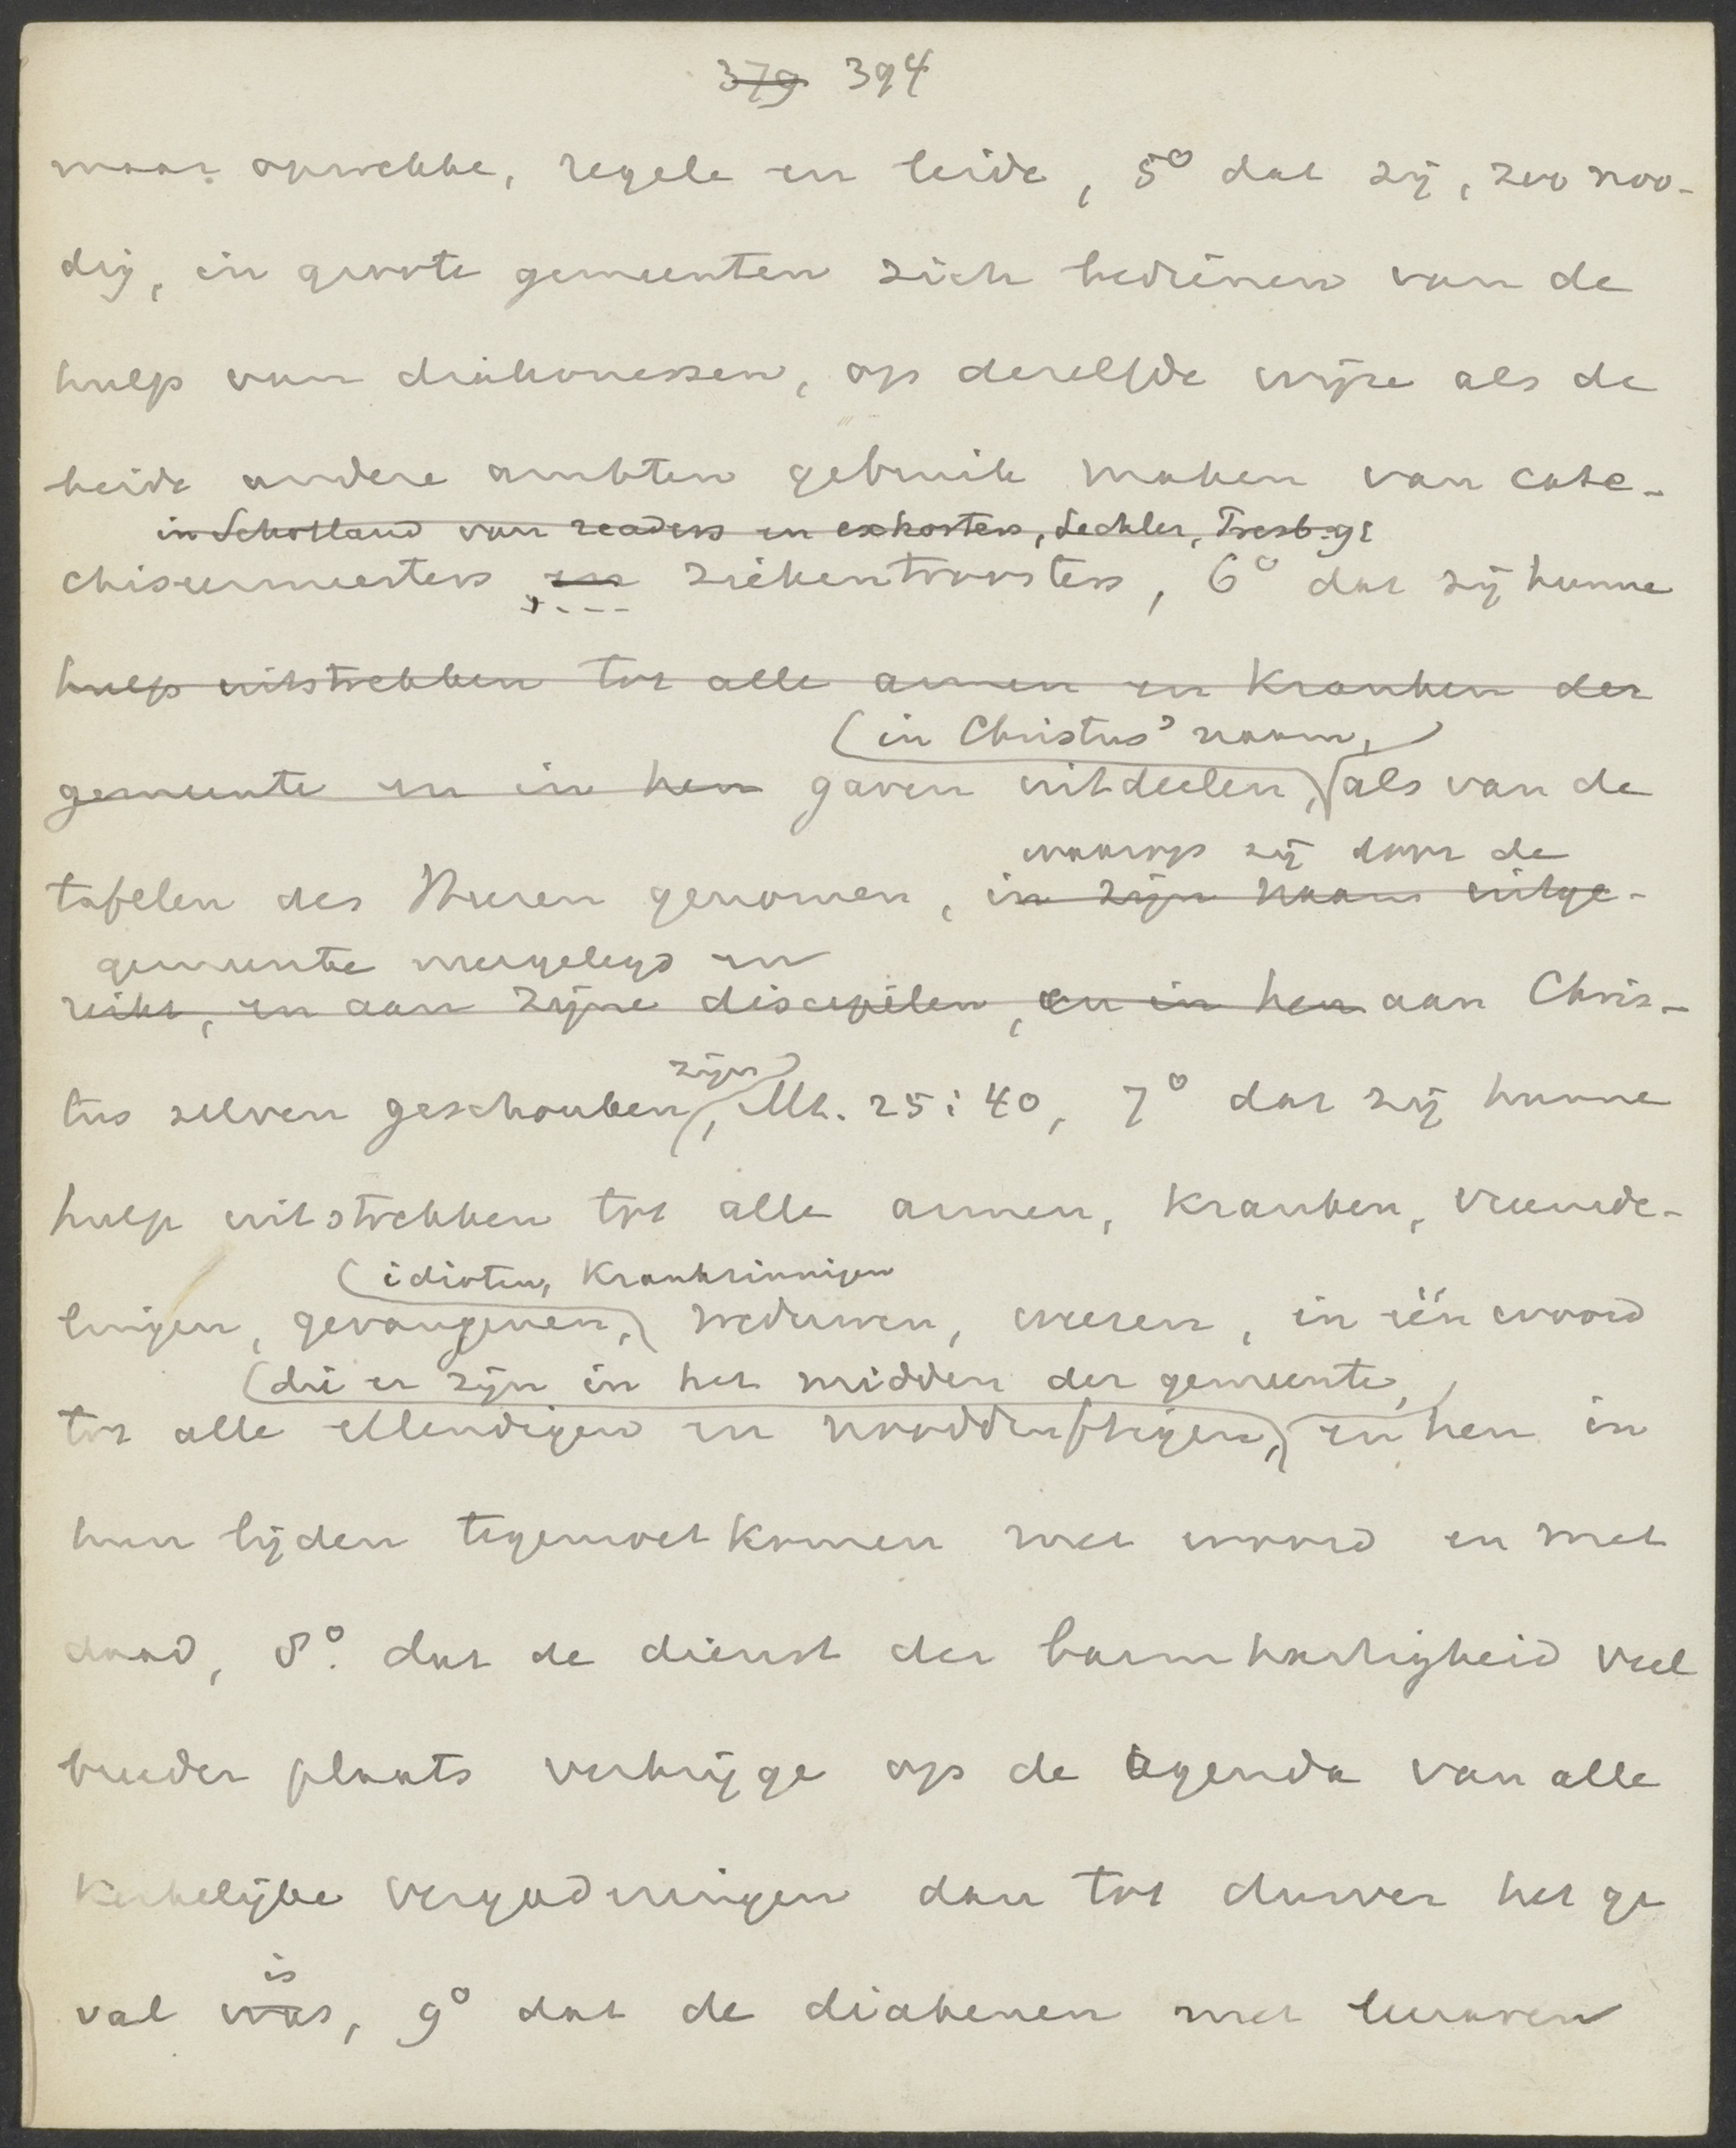 379 394
maar opwekke, regele en leide, 5° dat zij, zoo noo-
dig, in groote gemeenten zich bedienen van de
hulp van diakonessen, op dezelfde wijze als de
beide andere ambten gebruik maken van cate-
in Schotland van readers en exhorters, Lechler, Presb. 91
chiseermeesters, en ziekentroosters, 6° dat zij hunne
hulp uitstrekken tot alle armen en kranken der
(in Christus' naam,)
gemeente en in hen gaven uitdeelen, als van de
waarop zij door de
tafelen des Heeren genomen, in zijn naam uitge-
gemeente neergelegd en
reikt, en aan zijne discipelen, en in hen aan Chris-
zijn
tus zelven geschonken, Mt. 25:40, 7° dat zij hunne
hulp uitstrekken tot alle armen, kranken, vreemde-
(idioten, krankzinnigen
lingen, gevangenen, weduwen, weezen, in één woord
(die er zijn in het midden der gemeente,
tot alle ellendigen en nooddruftigen, en hen in
hun lijden tegemoetkomen met woord en met
daad, 8°. dat de dienst der barmhartigheid veel
breeder plaats verkrijge op de agenda van alle
kerkelijke vergaderingen dan tot dusver het ge
is
val was, 9° dat de diakenen met leeraren